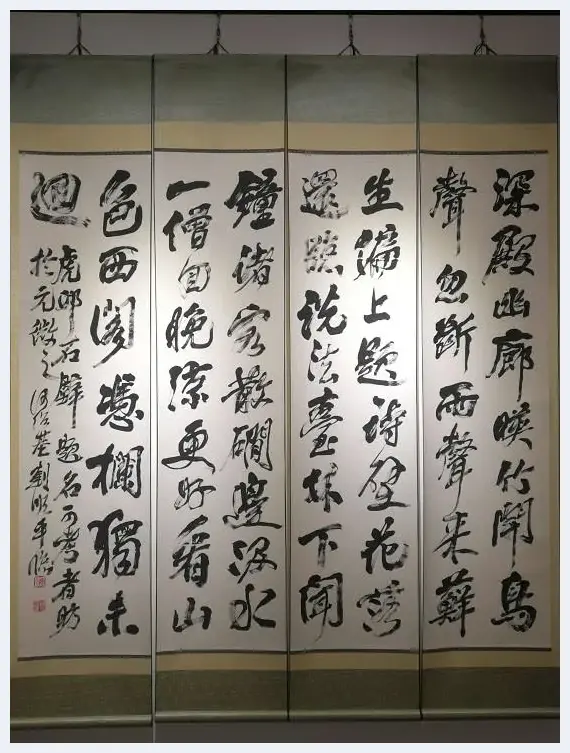 深殿幽廊暎竹開鳥
聲忽斷雨聲来蘚
生偏上題詩壁花落
還聽說法臺林下聞
鐘諸客散磵邊汲水
一僧回晚涼更好看山
色西阁憑欄獨未
迴
虎邱石壁題名可考者昉
於元微之 何紹基 劉順平臨